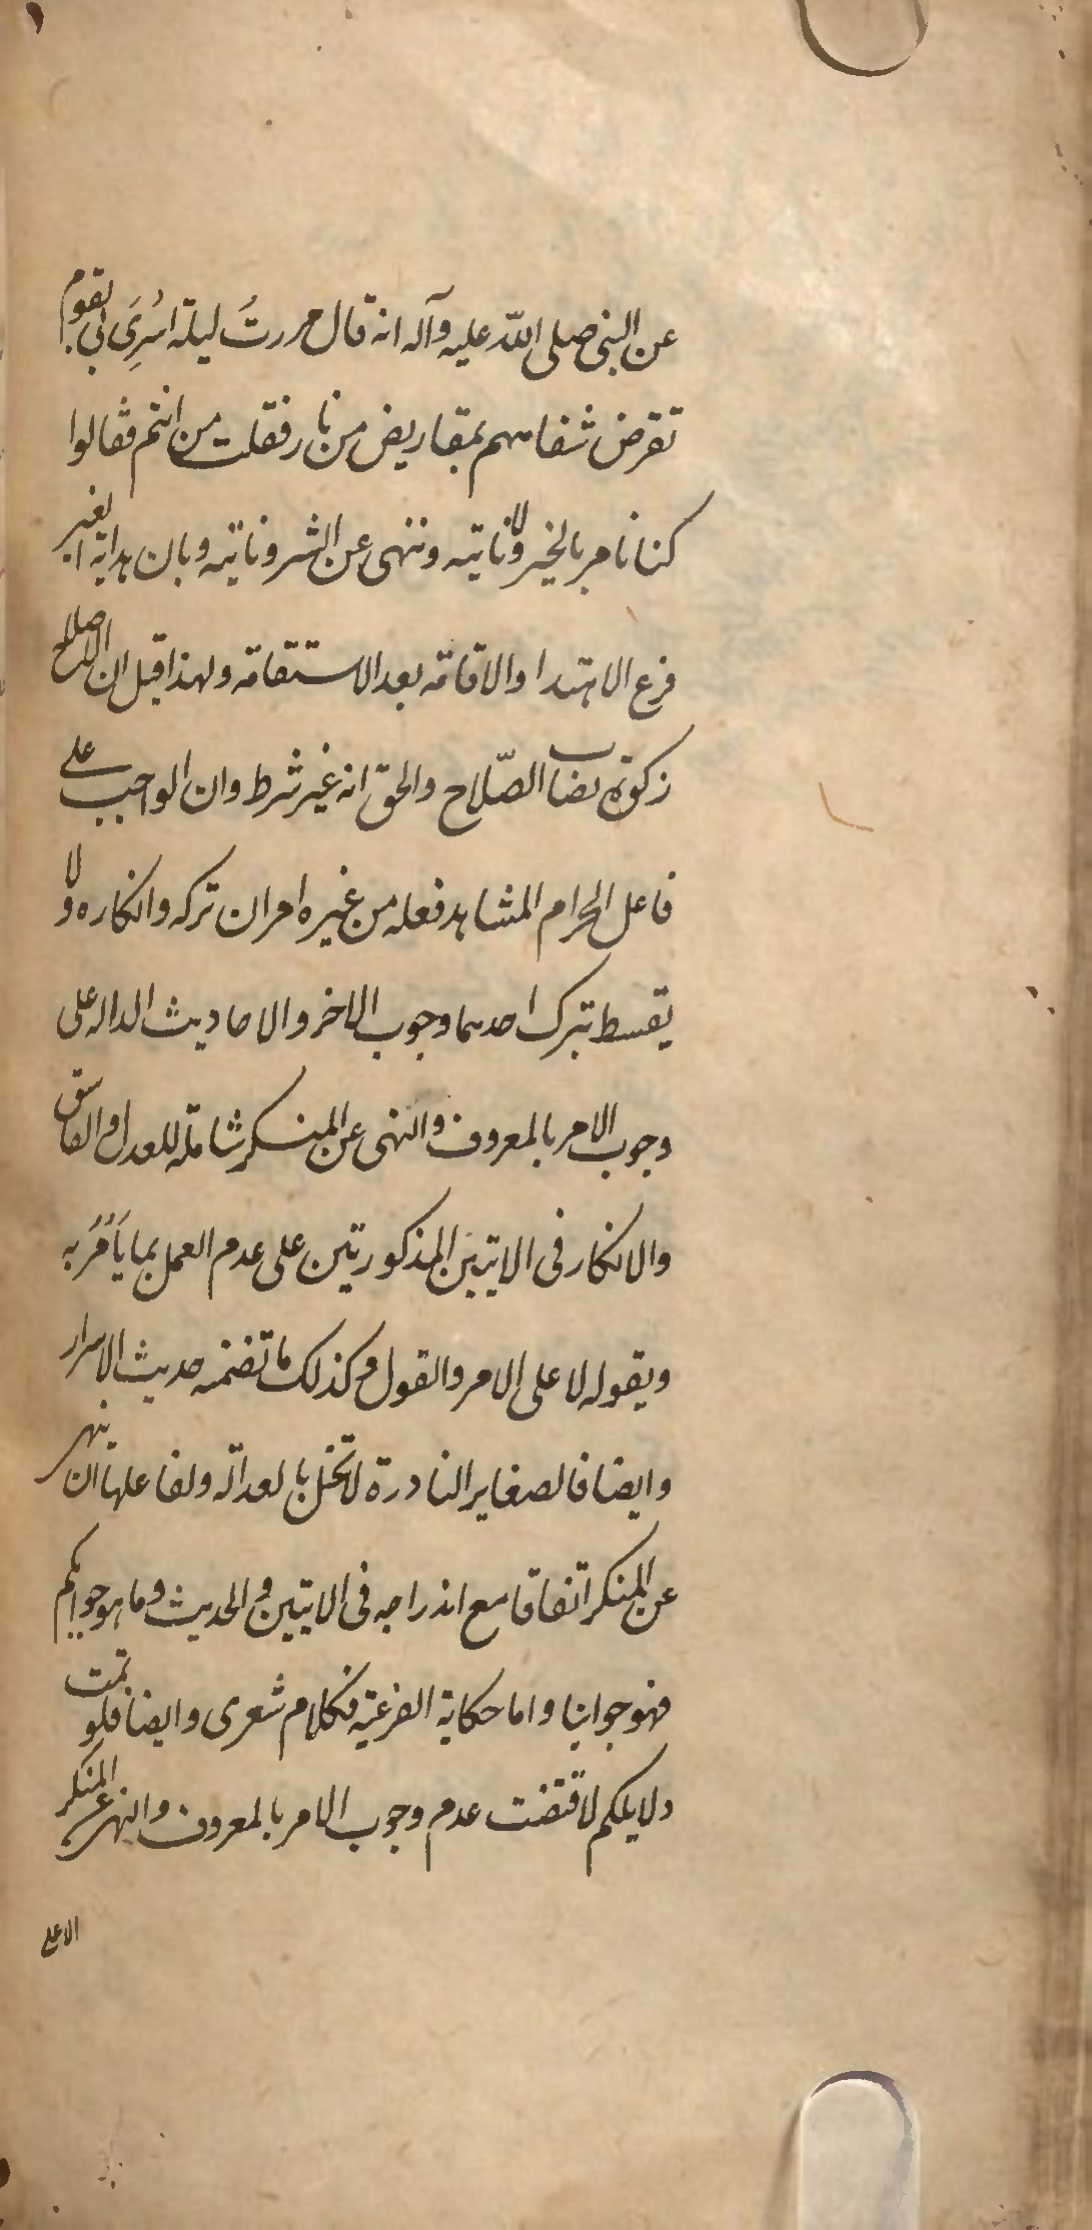 عن النبى صلى الله عليه وآله انه قال مررتُ ليلة اُسْرِىَ بى بقوم
تقرض شفاههم بمقاريض من نار فقلت من انتم فقالوا
كنا نامر بالخير ولا ناتيه وننهى عن الشر وناتيه وبان هداية الغير
فرع الاهتدا والاقامة بعد الاستقامة ولهذا قيل ان الاصلاح
زكوة نصاب الصّلاح والحق انه غير شرط وان الواجب على
فاعل الحرام المشاهد فعله من غيره امران تركه وانكاره ولا
يقسط بترك احدهما وجوب الاخر والاحاديث الداله على
وجوب الامر بالمعروف والنهى عن المنكر شاملة للعدل والفاسق
والانكار فى الايتين المذكورتين على عدم العمل بما يَأمُرُ به
ويقوله لا على الامر والقول وكذلك ما تضمنه حديث الاسرار
وايضا فالصغاير النادرة لا تخل بالعدالة ولفاعلها ان ينهى
عن المنكر اتفاقا مع اندراجه فى الايتين والحديث وما هو جوابكم
فهو جوابنا واما حكاية الفرعية فكلام شعرى وايضا فلو تمت
دلايلكم لاقتضت عدم وجوب الامر بالمعروف والنهى عن المنكر
الا على